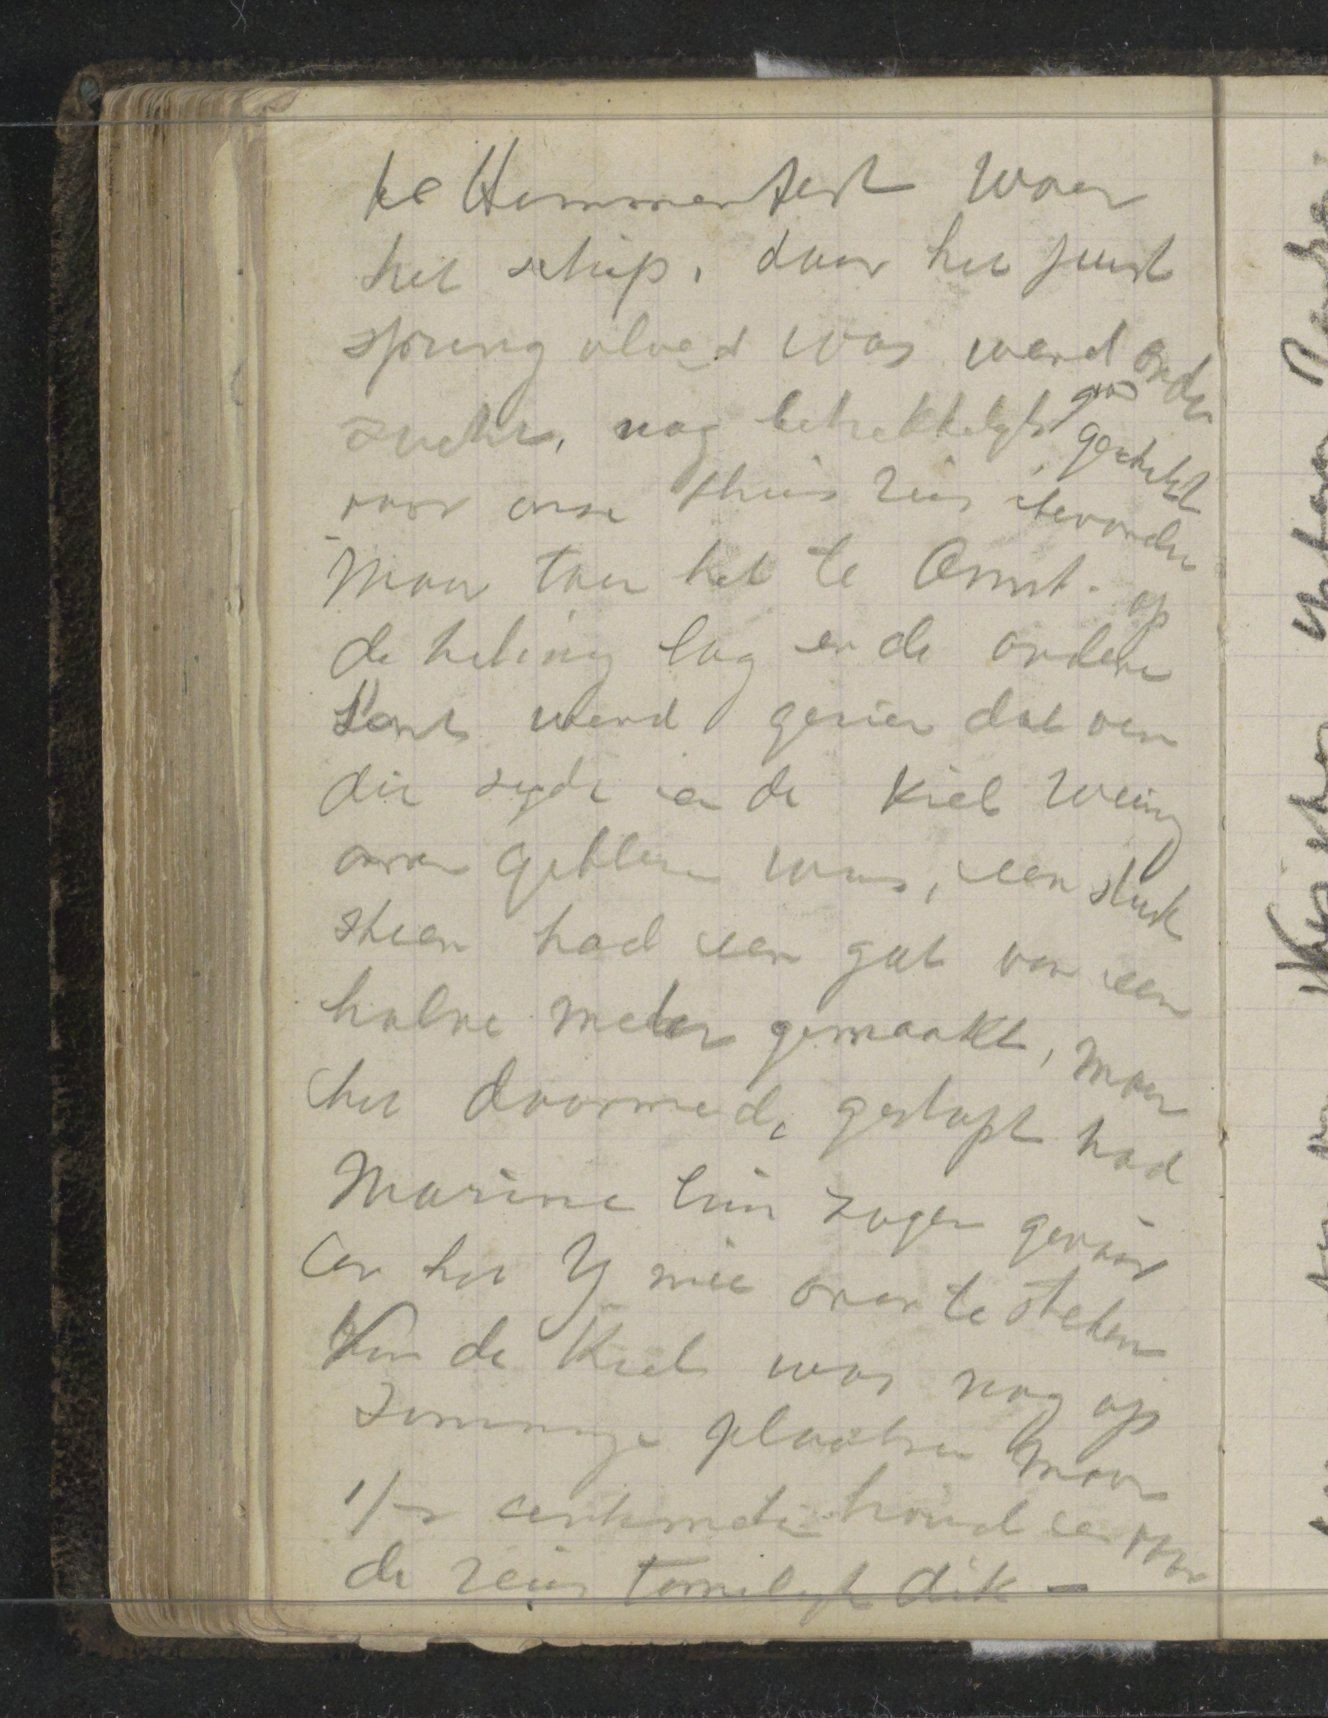 te Hammerfest waar
het schip, daar het juist
spring vloed was werd onder
zocht, nog betrekkelijk goed geschikt
voor onze thuis reis bevonden
Maar toen het te Amst. op
de heling lag en de andere
kant werd gezien dat van
die zyde en de Kiel weinig
over gebleven was, een stuk
steen had een gat van een
halve meter gemaakt, maar
het daarmede gestopt had
Marine lui zagen gevaar
en het Y mee over te steken
Van de Kiel was nog op
sommige plaatsen maar
centimeter hout en voor
de reis tamelijk dik —